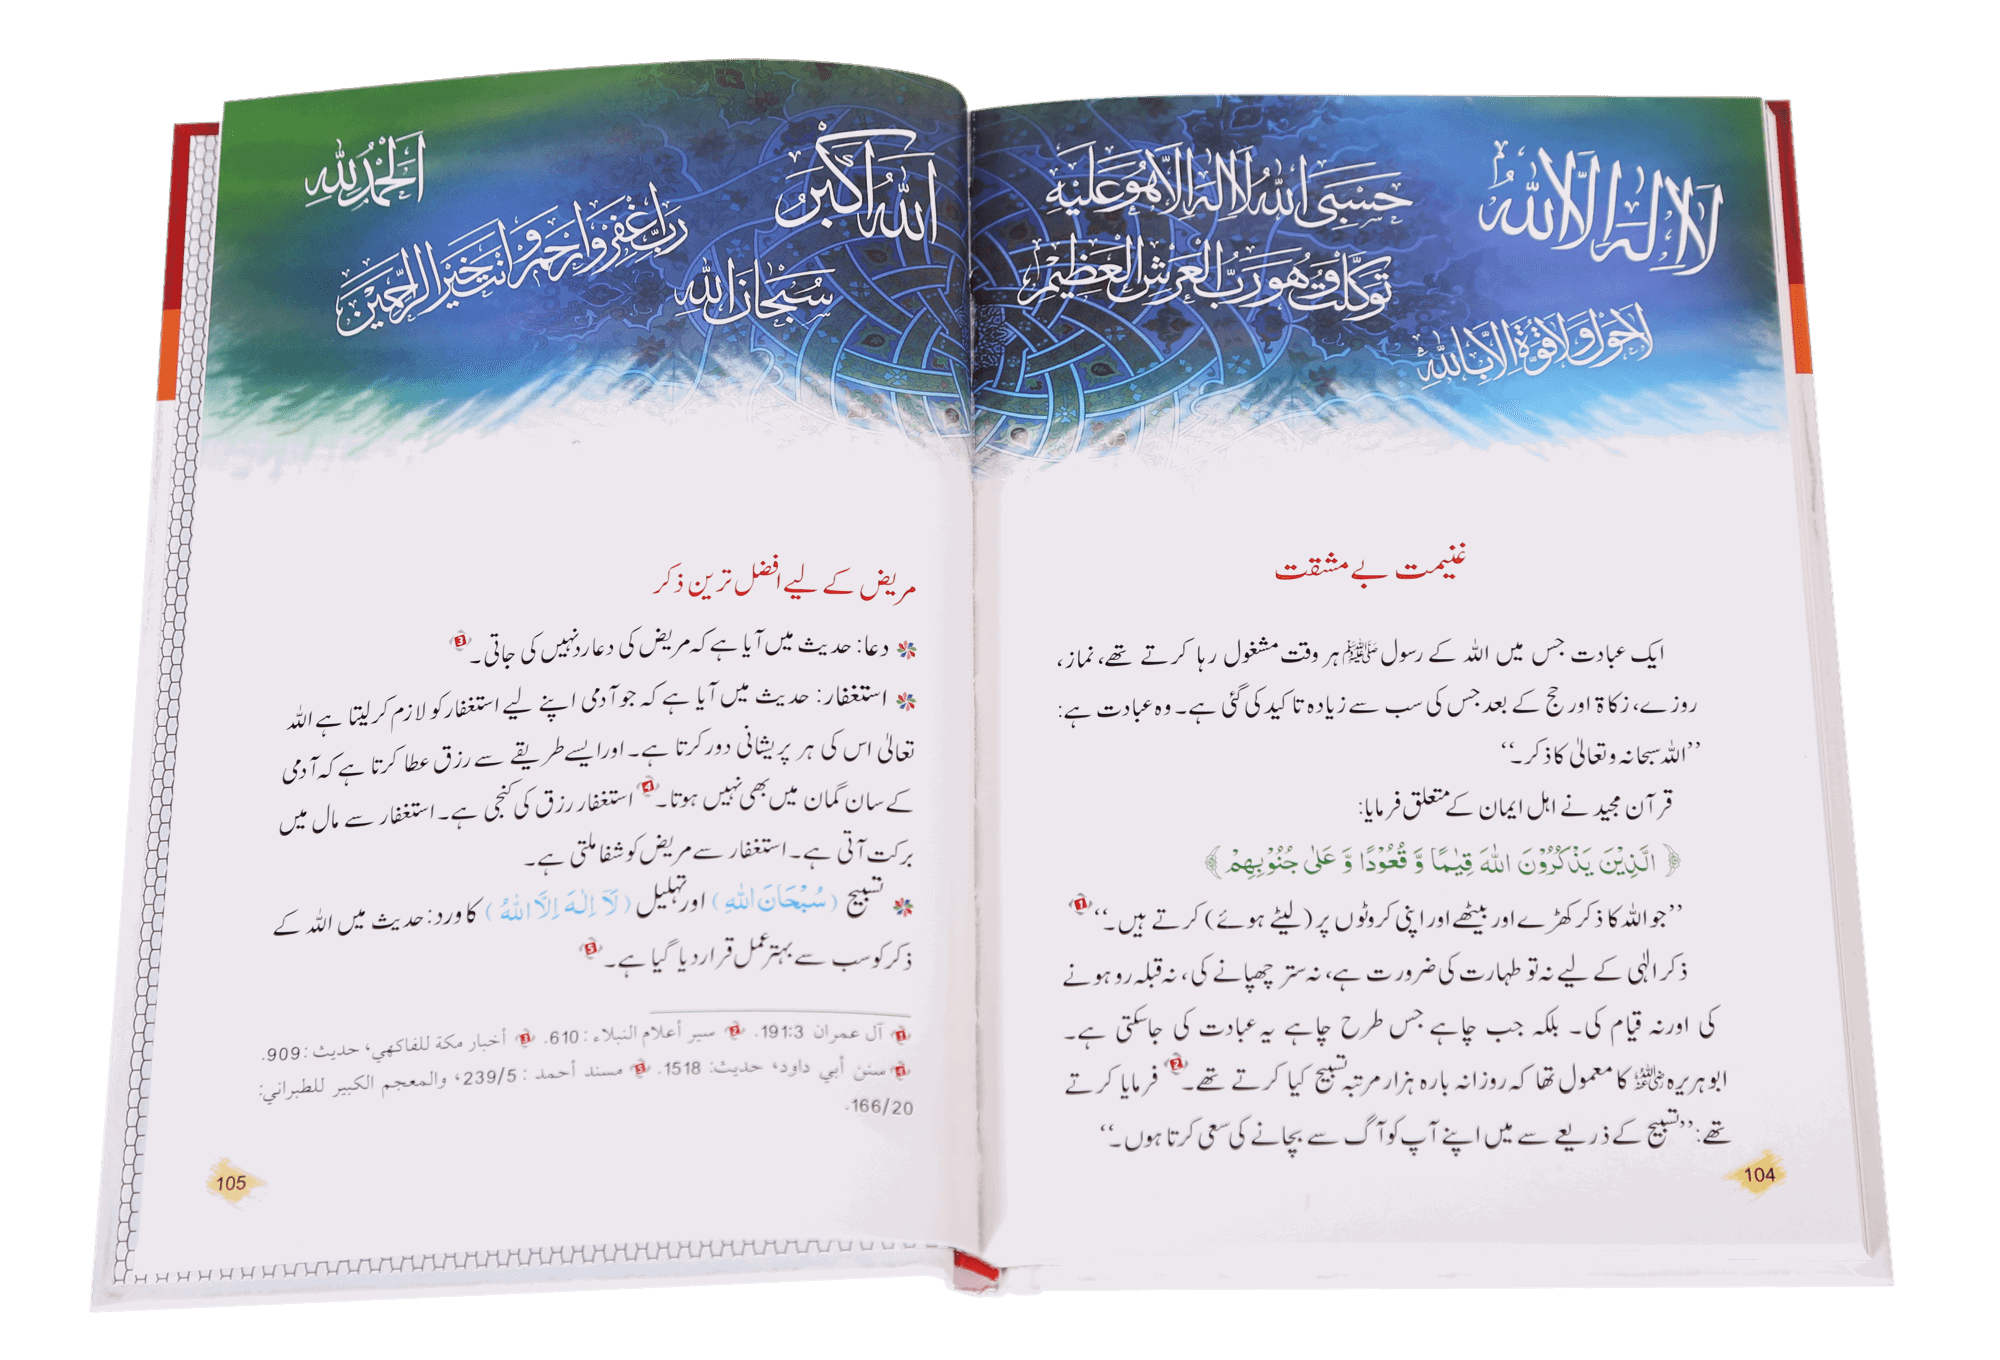 لا اله الا الله
حَسْبِيَ اللهُ لا اله الا هُوَ عَلَيْهِ
تَوَكَّلْتُ وَهُوَ رَبُّ الْعَرْشِ الْعَظِيمِ
لا حول ولا قوة الا بالله
غنیمت بے مشقت
ایک عبادت جس میں اللہ کے رسول ﷺ ہر وقت مشغول رہا کرتے تھے، نماز،
روزے، زکاۃ اور حج کے بعد جس کی سب سے زیادہ تاکید کی گئی ہے۔ وہ عبادت ہے:
”اللہ سبحانہ و تعالیٰ کا ذکر۔“
قرآن مجید نے اہل ایمان کے متعلق فرمایا:
﴿ الَّذِيْنَ يَذْكُرُوْنَ اللّٰهَ قِيٰمًا وَّ قُعُوْدًا وَّ عَلٰى جُنُوْبِهِمْ ﴾
”جو اللہ کا ذکر کھڑے اور بیٹھے اور اپنی کروٹوں پر (لیٹے ہوئے) کرتے ہیں۔“ 1
ذکر الٰہی کے لیے نہ تو طہارت کی ضرورت ہے، نہ ستر چھپانے کی، نہ قبلہ رو ہونے
کی اور نہ قیام کی۔ بلکہ جب چاہے جس طرح چاہے یہ عبادت کی جاسکتی ہے۔
ابوہریرہ رضی اللہ عنہ کا معمول تھا کہ روزانہ بارہ ہزار مرتبہ تسبیح کیا کرتے تھے۔ 2 فرمایا کرتے
تھے: ”تسبیح کے ذریعے سے میں اپنے آپ کو آگ سے بچانے کی سعی کرتا ہوں۔“
104
الْحَمْدُ لِلّٰهِ
اللهُ اَكْبَرُ
رَبِّ اغْفِرْ وَارْحَمْ وَاَنْتَ خَيْرُ الرّٰحِمِيْنَ
سُبْحَانَ الله
مریض کے لیے افضل ترین ذکر
دعا: حدیث میں آیا ہے کہ مریض کی دعا رد نہیں کی جاتی۔ 3
استغفار: حدیث میں آیا ہے کہ جو آدمی اپنے لیے استغفار کو لازم کر لیتا ہے اللہ
تعالیٰ اس کی ہر پریشانی دور کرتا ہے۔ اور ایسے طریقے سے رزق عطا کرتا ہے کہ آدمی
کے سان گمان میں بھی نہیں ہوتا۔ 4 استغفار رزق کی کنجی ہے۔ استغفار سے مال میں
برکت آتی ہے۔ استغفار سے مریض کو شفا ملتی ہے۔
تسبیح (سُبْحَانَ اللّٰهِ) اور تہلیل (لَآ اِلٰهَ اِلَّا اللّٰهُ) کا ورد: حدیث میں اللہ کے
ذکر کو سب سے بہتر عمل قرار دیا گیا ہے۔ 5
1 آل عمران 191:3. 2 سير أعلام النبلاء : 610. 3 أخبار مكة للفاكهي، حديث : 909.
4 سنن أبي داود، حديث: 1518. 5 مسند أحمد : 239/5، والمعجم الكبير للطبراني:
166/20.
105